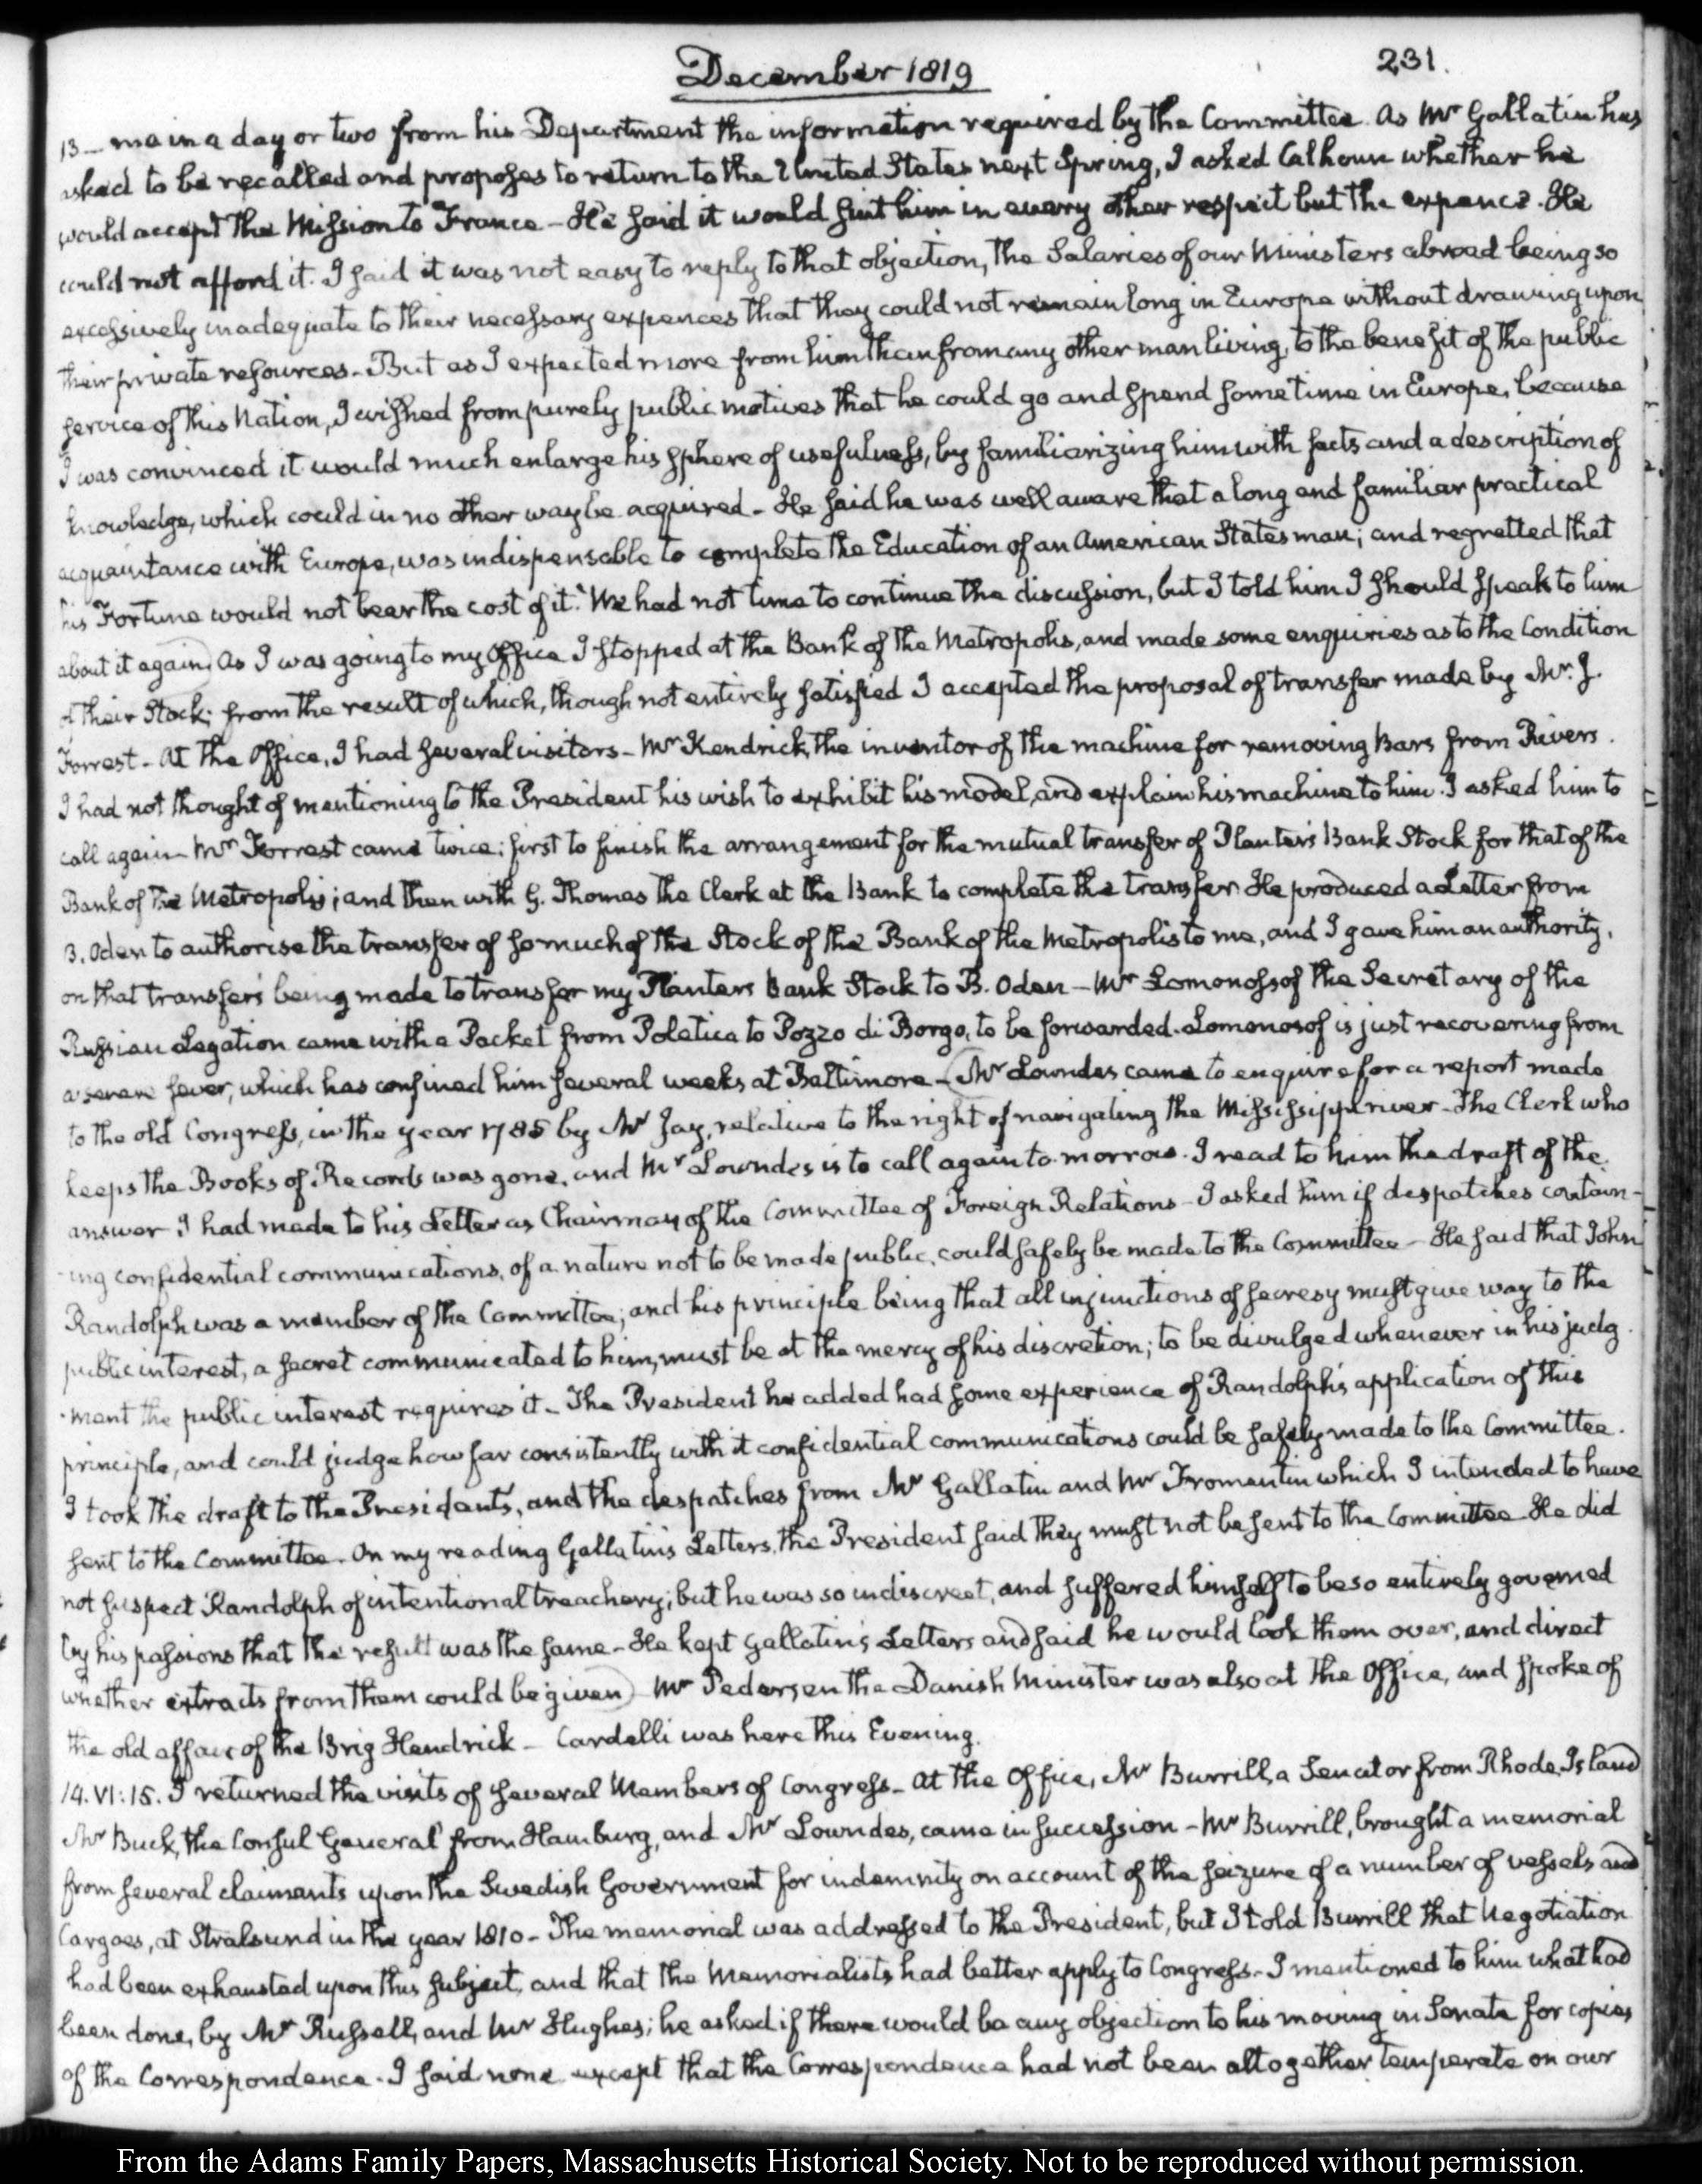 December 1819
231.
13 — me in a day or two from his Department the information required by the Committee. As Mr Gallatin has
asked to be recalled and proposes to return to the United States next Spring, I asked Calhoun whether he
would accept the Mission to France — He said it would suit him in every other respect but the expence. He
could not afford it. I said it was not easy to reply to that objection, the Salaries of our Ministers abroad being so
excessively inadequate to their necessary expences that they could not remain long in Europe without drawing upon
their private resources — But as I expected more from him than from any other man living, to the benefit of the public
service of this Nation, I wished from purely public motives that he could go and spend some time in Europe, because
I was convinced it would much enlarge his sphere of usefulness, by familiarizing him with facts and a description of
knowledge, which could in no other way be acquired — He said he was well aware that a long and familiar practical
acquaintance with Europe, was indispensable to complete the Education of an American Statesman; and regretted that
his Fortune would not bear the cost of it. We had not time to continue the discussion, but I told him I should speak to him
about it again) As I was going to my Office I stopped at the Bank of the Metropolis, and made some enquiries as to the Condition
of their Stock; from the result of which, though not entirely satisfied I accepted the proposal of transfer made by Mr. J.
Forrest — At the Office, I had several visitors — Mr Kendrick, the inventor of the machine for removing Bars from Rivers.
I had not thought of mentioning to the President his wish to exhibit his model, and explain his machine to him. I asked him to
call again — Mr Forrest came twice; first to finish the arrangement for the mutual transfer of Planter's Bank Stock for that of the
Bank of the Metropolis; and then with G. Thomas the Clerk at the Bank to complete the transfer. He produced a Letter from
B. Oden to authorise the transfer of so much of the Stock of the Bank of the Metropolis to me, and I gave him an authority,
on that transfer's being made to transfer my Planters bank Stock to B. Oden — Mr Lomonossof the Secretary of the
Russian Legation came with a Packet from Poletica to Pozzo di Borgo, to be forwarded. Lomonosof is just recovering from
a severe fever, which has confined him several weeks at Baltimore — (Mr Lowndes came to enquire for a report made
to the old Congress, in the year 1785 by Mr Jay, relative to the right of navigating the Mississippi river — The Clerk who
keeps the Books of Records was gone, and Mr Lowndes is to call again to-morrow. I read to him the draft of the
answer I had made to his Letter as Chairman of the Committee of Foreign Relations — I asked him if despatches contain-
-ing confidential communications, of a nature not to be made public, could safely be made to the Committee — He said that John
Randolph was a member of the Committee; and his principle being that all injunctions of secresy must give way to the
public interest, a secret communicated to him, must be at the mercy of his discretion; to be divulged whenever in his judg-
-ment the public interest requires it — The President he added had some experience of Randolph's application of this
principle, and could judge how far consistently with it confidential communications could be safely made to the Committee.
I took the draft to the President's, and the despatches from Mr Gallatin and Mr Fromentin which I intended to have
sent to the Committee. On my reading Gallatin's Letters, the President said they must not be sent to the Committee — He did
not suspect Randolph of intentional treachery; but he was so indiscreet, and suffered himself to be so entirely governed
by his passions that the result was the same — He kept Gallatin's Letters and said he would look them over, and direct
whether extracts from them could be given) — Mr Pedersen the Danish Minister was also at the Office, and spoke of
the old affair of the Brig Hendrick — Cardelli was here this Evening.
14. VI:15. I returned the visits of several Members of Congress — At the Office, Mr Burrill, a Senator from Rhode Island
Mr Buck, the Consul General from Hamburg, and Mr Lowndes, came in succession — Mr Burrill, brought a memorial
from several claimants upon the Swedish Government for indemnity on account of the seizure of a number of vessels and
Cargoes, at Stralsund in the year 1810 — The memorial was addressed to the President, but I told Burrill that Negotiation
had been exhausted upon this subject, and that the Memorialists had better apply to Congress — I mentioned to him what had
been done, by Mr Russell, and Mr Hughes; he asked if there would be any objection to his moving in Senate for copies
of the Correspondence. I said none except that the Correspondence had not been altogether temperate on our
From the Adams Family Papers, Massachusetts Historical Society. Not to be reproduced without permission.